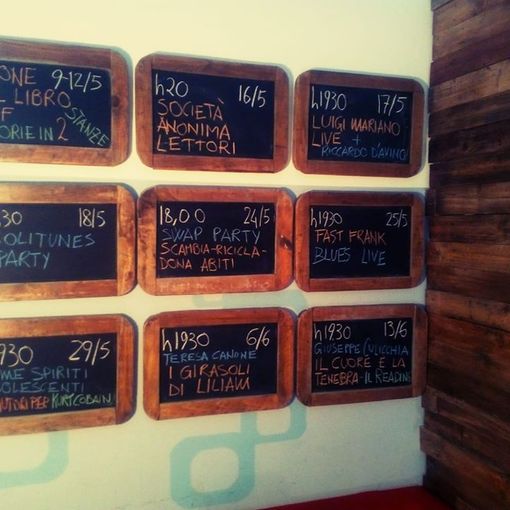 ONE 9-12/5
L LIBRO
F STANZE
ORIE IN 2
h20 16/5
SOCIETÀ
ANONIMA
LETTORI
h1930 17/5
LUIGI MARIANO
LIVE +
RICCARDO D'AVINO
30 18/5
OLITUNES
PARTY
18,00 24/5
SWAP PARTY
SCAMBIA-RICICLA-
DONA ABITI
h1930 25/5
FAST FRANK
BLUES LIVE
930 29/5
ME SPIRITI
OLESCENTI
PER KURT COBAIN
h1930 6/6
TERESA CANONE
I GIRASOLI
DI LILIAM
h1930 13/6
GIUSEPPE CULICCHIA
IL CUORE E LA
TENEBRA-IL READING